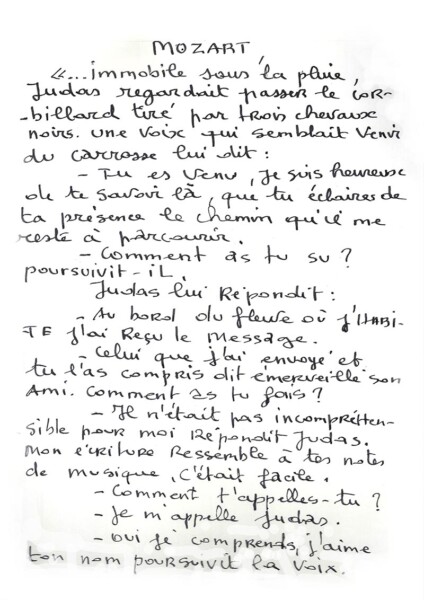 MOZART,
«...immobile sous la pluie,
Judas regardait passer le cor-
-billard tiré par trois chevaux
noirs. une voix qui semblait venir
du carrosse lui dit :
- Tu es venu, je suis heureuse
de te savoir là, que tu éclaires de
ta présence le chemin qu'il me
reste à parcourir.
- Comment as tu su ?
poursuivit-il.
Judas lui répondit :
- Au bord du fleuve où j'HABI-
TE j'ai reçu le message.
- Celui que j'ai envoyé et
tu l'as compris dit émerveillé son
Ami. Comment as tu fais ?
- Il n'était pas incompréhen-
sible pour moi répondit Judas.
Mon écriture ressemble à tes notes
de musique, c'était facile.
- Comment t'appelles-tu ?
- Je m'appelle Judas.
- oui je comprends, j'aime
ton nom poursuivit la voix.